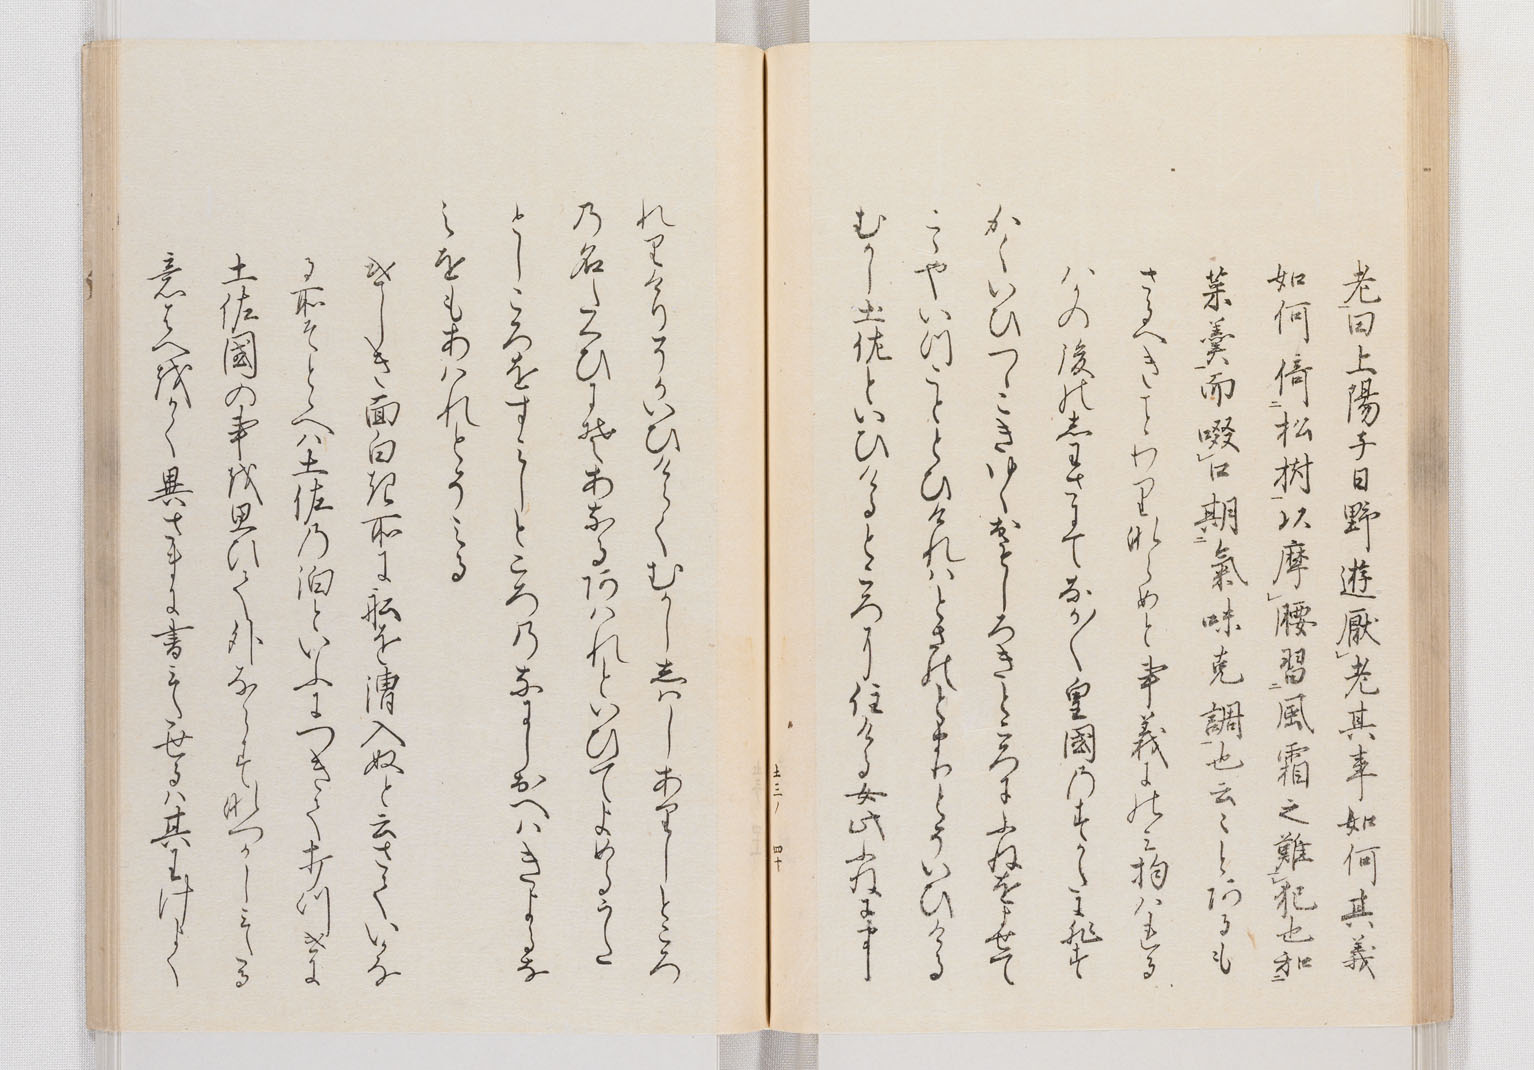 老曰上陽子日野遊厭老其事如何其義
如何倚松樹以摩腰習風霜之難犯也和
菜羹而啜口期氣味克調也云々とあるも
さるへきことわりなめと事義よのみ拘はれる
は後のしわさにてなかく皇國のすかたに非す
かくいひつゝこきゆくおもしろきところにふねをよせて
こゝやいつことゝひけれはとさのとまりとそいひける
むかし土佐といひけるところに住ける女此ふねに
れりけりそかいひけらくむかししはしありしところ
の名たくひにそあなるあはれといひてよめるうた
としころをすみしところのなにしおへはきよるな
みをもあはれとそみる
きしき面白き所に船を漕入ぬと云さていつな
る所そととへは土佐の泊といふにつきておつきに
土佐國の事を思ひて外ならすなつかしみたる
意はへをかく異さまに書みたせるは其わけよく
土三ノ 四十